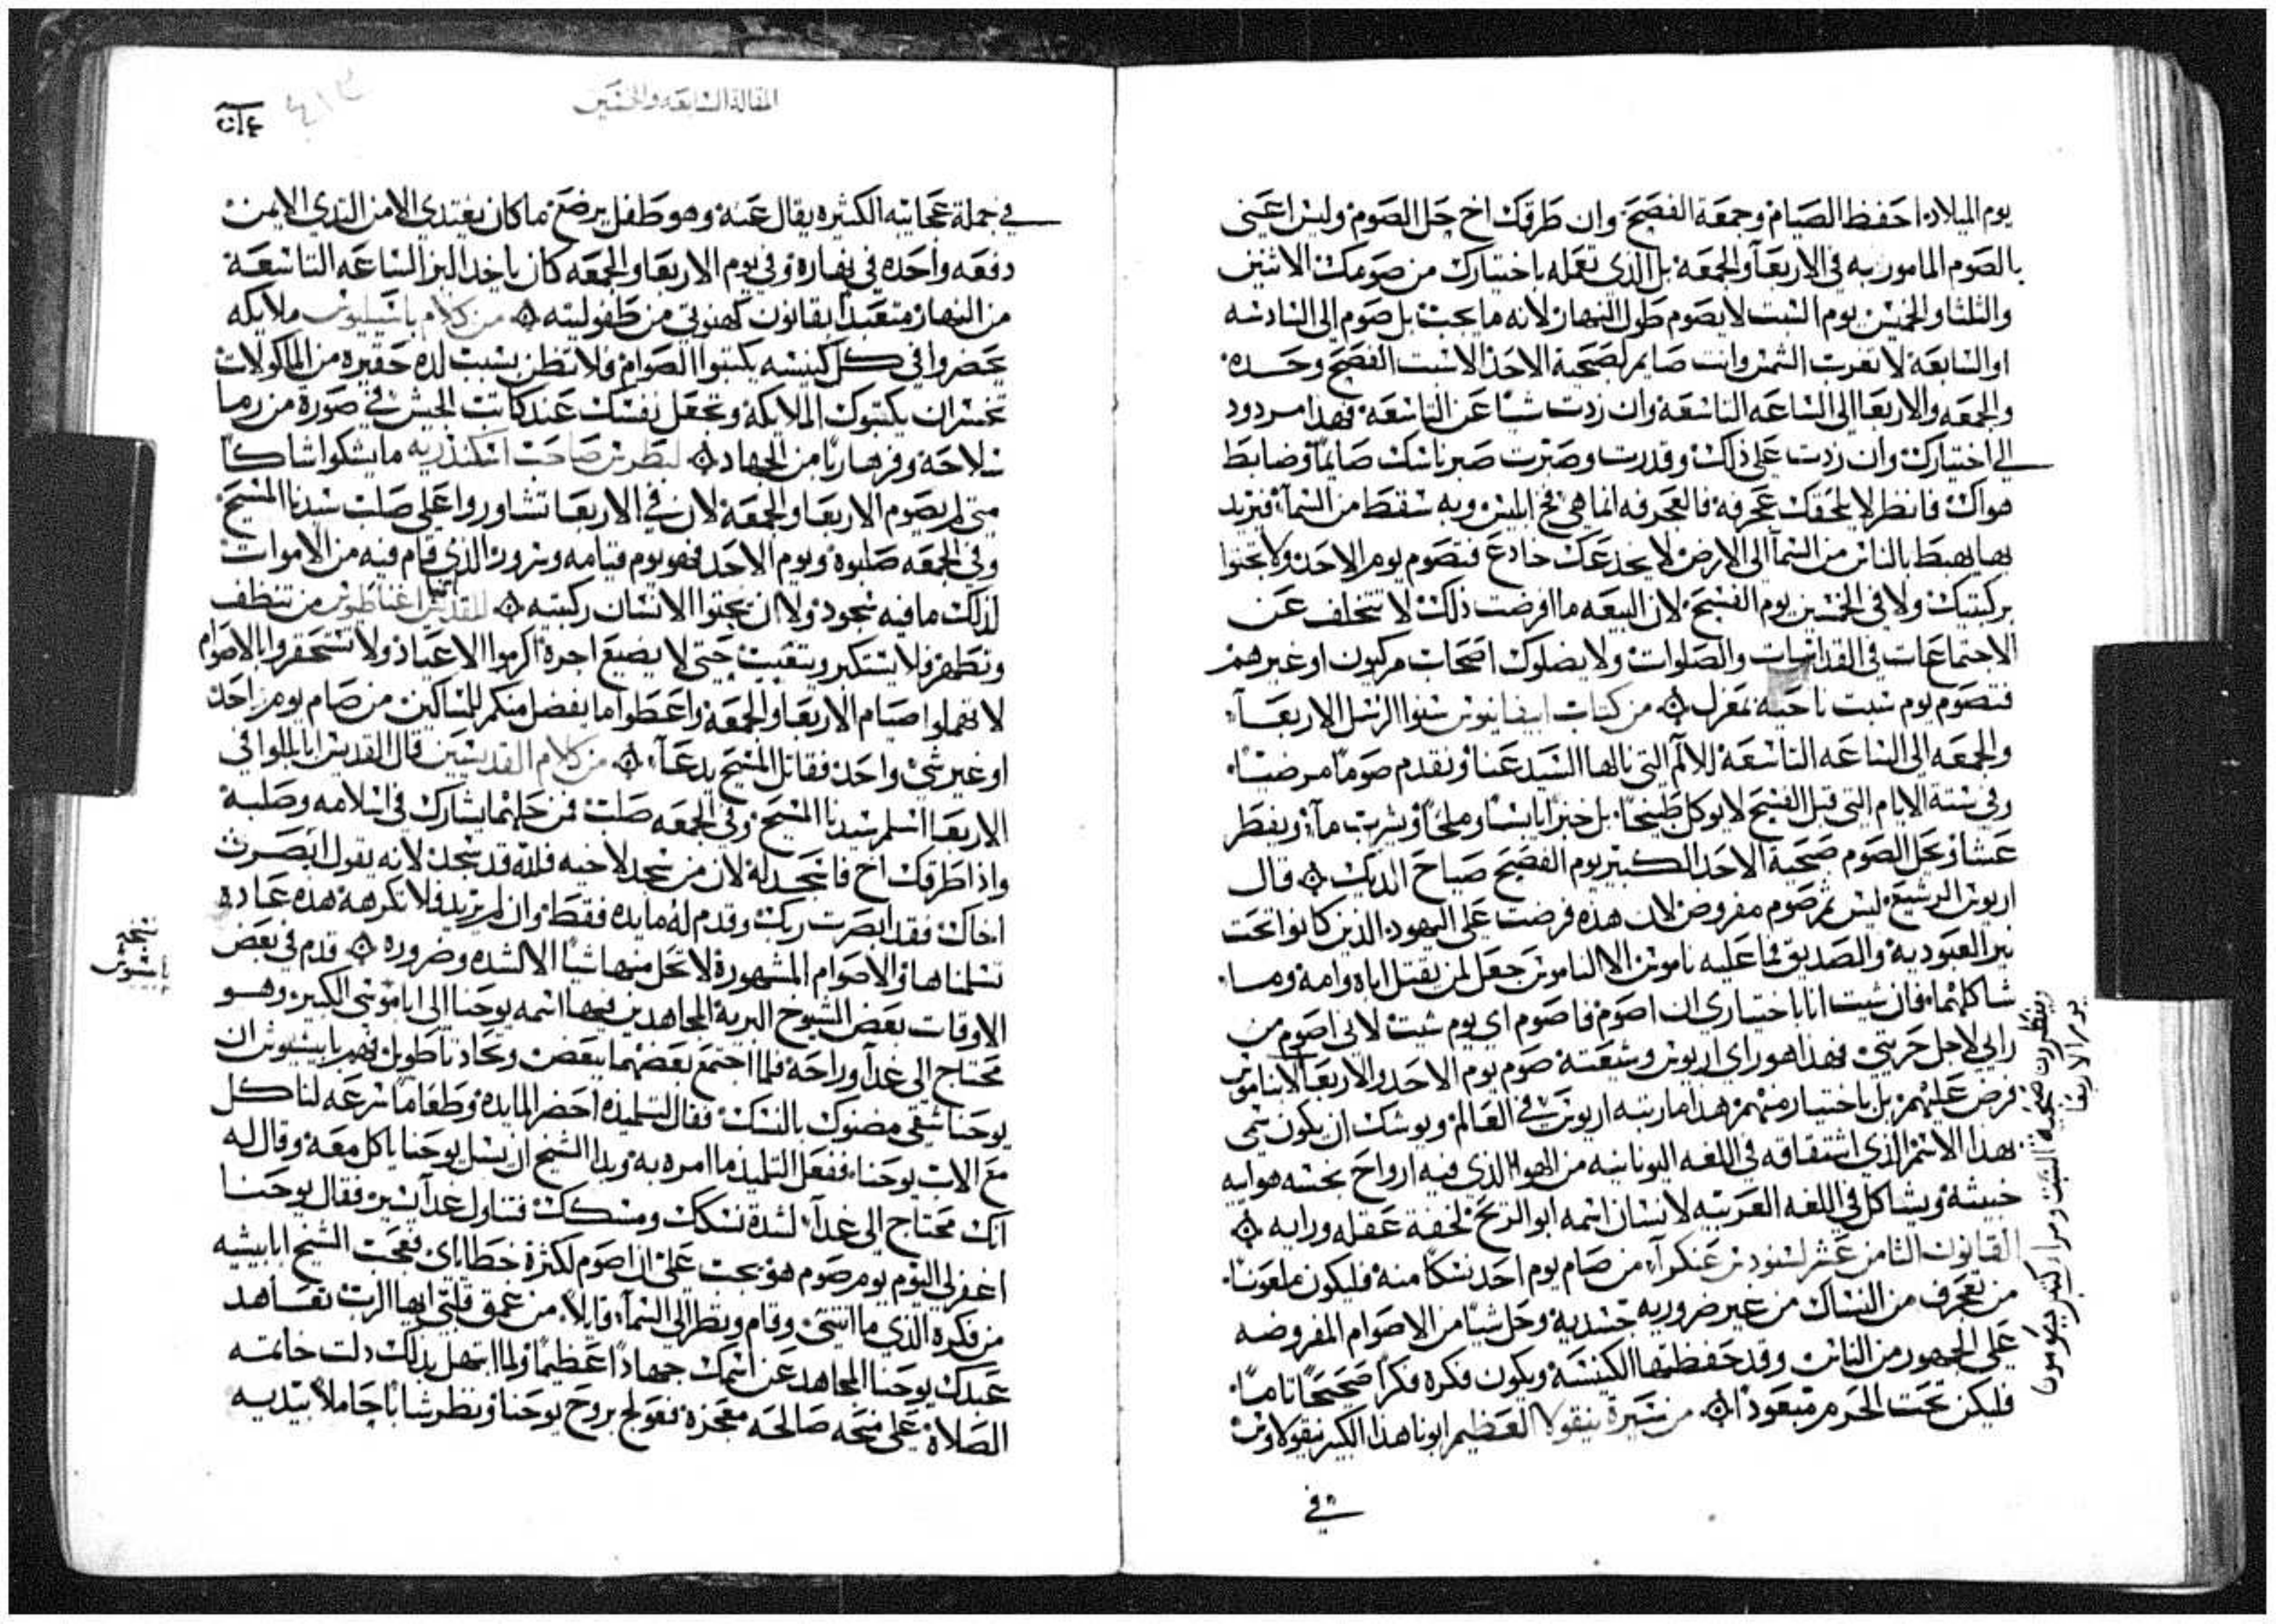 يوم الميلاد احفظ الصيام وجمعة الفصح وان طرقك اخ حل الصوم وليس اعنى
بالصوم المامور به في الاربعا والجمعة بل الذي تعمله باختيارك من صومك الاثنين
والثلثا والخميس يوم السبت لا يصوم طول النهار لانه ما يجب بل صوم الى السادسه
او السابعة لا تقرب الثمن وانت صايم لصحية الاحد الا سبت الفصح وحده
والجمعه والاربعا الى الساعه التاسعة وان زدت شيا عن التاسعة فهذا مردود
الى اختيارك وان زدت على ذلك وقدرت وصبرت صبر ناسك صايما وضابط
هواك فانظر لا يلحقك عجرفة فالعجرفه انما هي فخ ابليس وبه سقط من السماء فيريد
بها يهبط بالناس من السما الى الارض لا يخدعك خادع فتصوم يوم الاحد ولا تجثوا
بركبتيك ولا في الخمسين يوم الفسح لان البيعه ما افرضت ذلك لا تتخلف عن
الاجتماعات في القداسات والصلوات ولا يضلوك اصحاب مركيون او غيرهم
فتصوم يوم سبت ناحية بمعزل من كتاب ابيفانيوس سنوا الرسل الاربعا
والجمعه الى الساعه التاسعة للالم التي نالها السيد عنا ونقدم صوما مرضيا
وفي ستة الايام التي قبل الفسح لا يوكل طبيخا بل خبزا يابسا وملحا ويشرب ما ويفطر
عشا ويحل الصوم صحية الاحد الكبير يوم الفصح صياح الديك قال
اريوس الرشيع ليس ثم صوم مفروض لان هذه فرضت على اليهود الذين كانوا تحت
نير العبودية والصديق فما عليه ناموس الا الناموس جعل لمن يقتل اباه وامه وما
شاكلهما فان شيت انا باختياري ان اصوم فاصوم اى يوم شيت لاني اصوم من
رايي لاجل حريتي فهذا هو راي اريوس وشيعته صوم يوم الاحد والاربعا لا بناموس
فرض عليهم بل باختيار منهم هذا ما رتبه اريوس في العالم ويوشك ان يكون سمى
بهذا الاسم الذي اشتقاقه في اللغه اليونانيه من الهوا الذي فيه ارواح بخسه هوايه
خبيثة ويشاكل في اللغه العربيه لانسان اسمه ابو الريح لخفة عقله ورايه
القانون الثامن عشر لسنودس غنكرا من صام يوم احد نسكا منه فليكون ملعونا
من تعجرف من النساك من غير ضروريه جسدية وحل شيا من الاصوام المفروضه
على الجمهور من الناس وقد حفظتها الكنيسة ويكون فكره فكرا صحيحا تاما
فليكن تحت الحرم متبعودا من سيرة نيقولا العظيم ابونا هذا الكبير نيقولاوس
في
المقالة السابعة والخمسين
في جملة عجايبه الكثيره يقال عنه وهو طفل يرضع ما كان يغتدي الا من الثدي الايمن
دفعه واحده في نهاره وفي يوم الاربعا والجمعه كان ياخد البز الساعه التاسعة
من النهار متعبدا بقانون كهنوتي من طفوليته من كلام باسيليوس ملايكه
يحضروا في كل كنيسه يكتبوا الصوام فلا تظن بسبب لده حقيره من الماكولات
تخسر ان يكتبوك الملايكة وتجعل نفسك عند كاتب الجيش في صورة من رما
سلاحة وفر هاربا من الجهاد لبطرس صاحب اسكندريه ما يشكوا شاكا
متى لم يصوم الاربعا والجمعة لان في الاربعا تشاوروا على صلب سيدنا المسيح
وفي الجمعه صلبوه ويوم الاحد فهو يوم قيامه وسرور الذي قام فيه من الاموات
لذلك ما فيه سجود ولا ان يجثوا الانسان ركبتيه للقديس اغناطيوس من تنظف
وتطهر فلا يستكبر ويتعيب حتى لا يضيع اجره اكرموا الاعياد ولا تستحقروا بالاصوام
لا تهملوا صيام الاربعا والجمعة واعطوا ما يفضل منكم للمساكين من صام يوم احد
او غير شي واحد فقاتل المسيح يدعا من كلام القديسين قال القديس ابا بللوا في
الاربعا اسلم سيدنا المسيح وفي الجمعه صلب فمن حلهما يشارك في اسلامه وصلبه
واذا طرقك اخ فاسجد له لان من سجد لاخيه فلله قد سجد لانه يقول ابصرت
اخاك فقد ابصرت ربك وقدم له مايده فقط وان لم يريد فلا تكرهه هذه عاده
تسلمناها والاصوام المشهورة لا تحل منها شيا الا لشده وضروره قدم في بعض
الاوقات بعض الشيوخ البرية المجاهدين فيها اسمه يوحنا الى ابا موسى الكبير وهو
محتاج الى غدا وراحة فلما اجتمع بعضهما ببعض وتحادثا طويل فهم بابيشيوس ان
يوحنا شقى مضنوك بالنسك فقال لتلميذه احضر المايده وطعاما سرعه لناكل
مع الاب يوحنا ففعل التلميذ ما امره به وبدا الشيخ ان يسل يوحنا ياكل معه وقال له
انك محتاج الى غدا لشدة نسكك ومسكك فتناول غدا يسير فقال يوحنا
اغفر لي اليوم يوم صوم هو يجب علي ان اصوم لكثرة خطاياي فعجب الشيخ ابا بيشيه
من فكره الذي ما انثنى وقام ونظر الى السما قايلا من عمق قلبي ايها الرب تعاهد
عبدك يوحنا المجاهد عن اسمك جهادا عظيما ولما ابتهل بذلك دلت خاتمه
الصلاة على منحه صالحه معجزة فعولج بروح يوحنا ونظر شابا حاملا بيديه